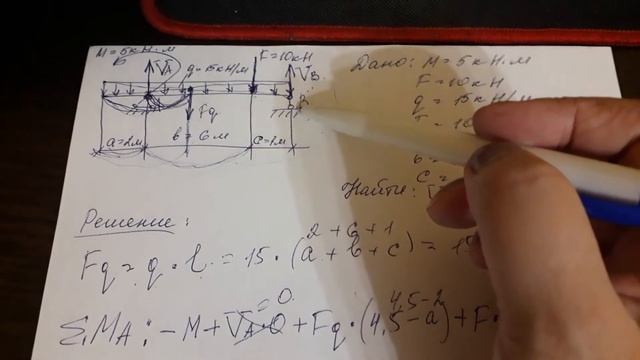 M = 5кН·м
VA
q = 15кН/м
F = 10кН
VB
B
Fq
a = 2м
в = 6м
c = 1м
Дано: M = 5кН·м
F = 10кН
q = 15кН/м
в =
c =
Найти: V
Решение:
2 + 6 + 1
Fq = q · l = 15 · (a + в + c) = 15
= 0 4,5 - 2
ΣMA: - M + VA · 0 + Fq · (4,5 - a) + F ·